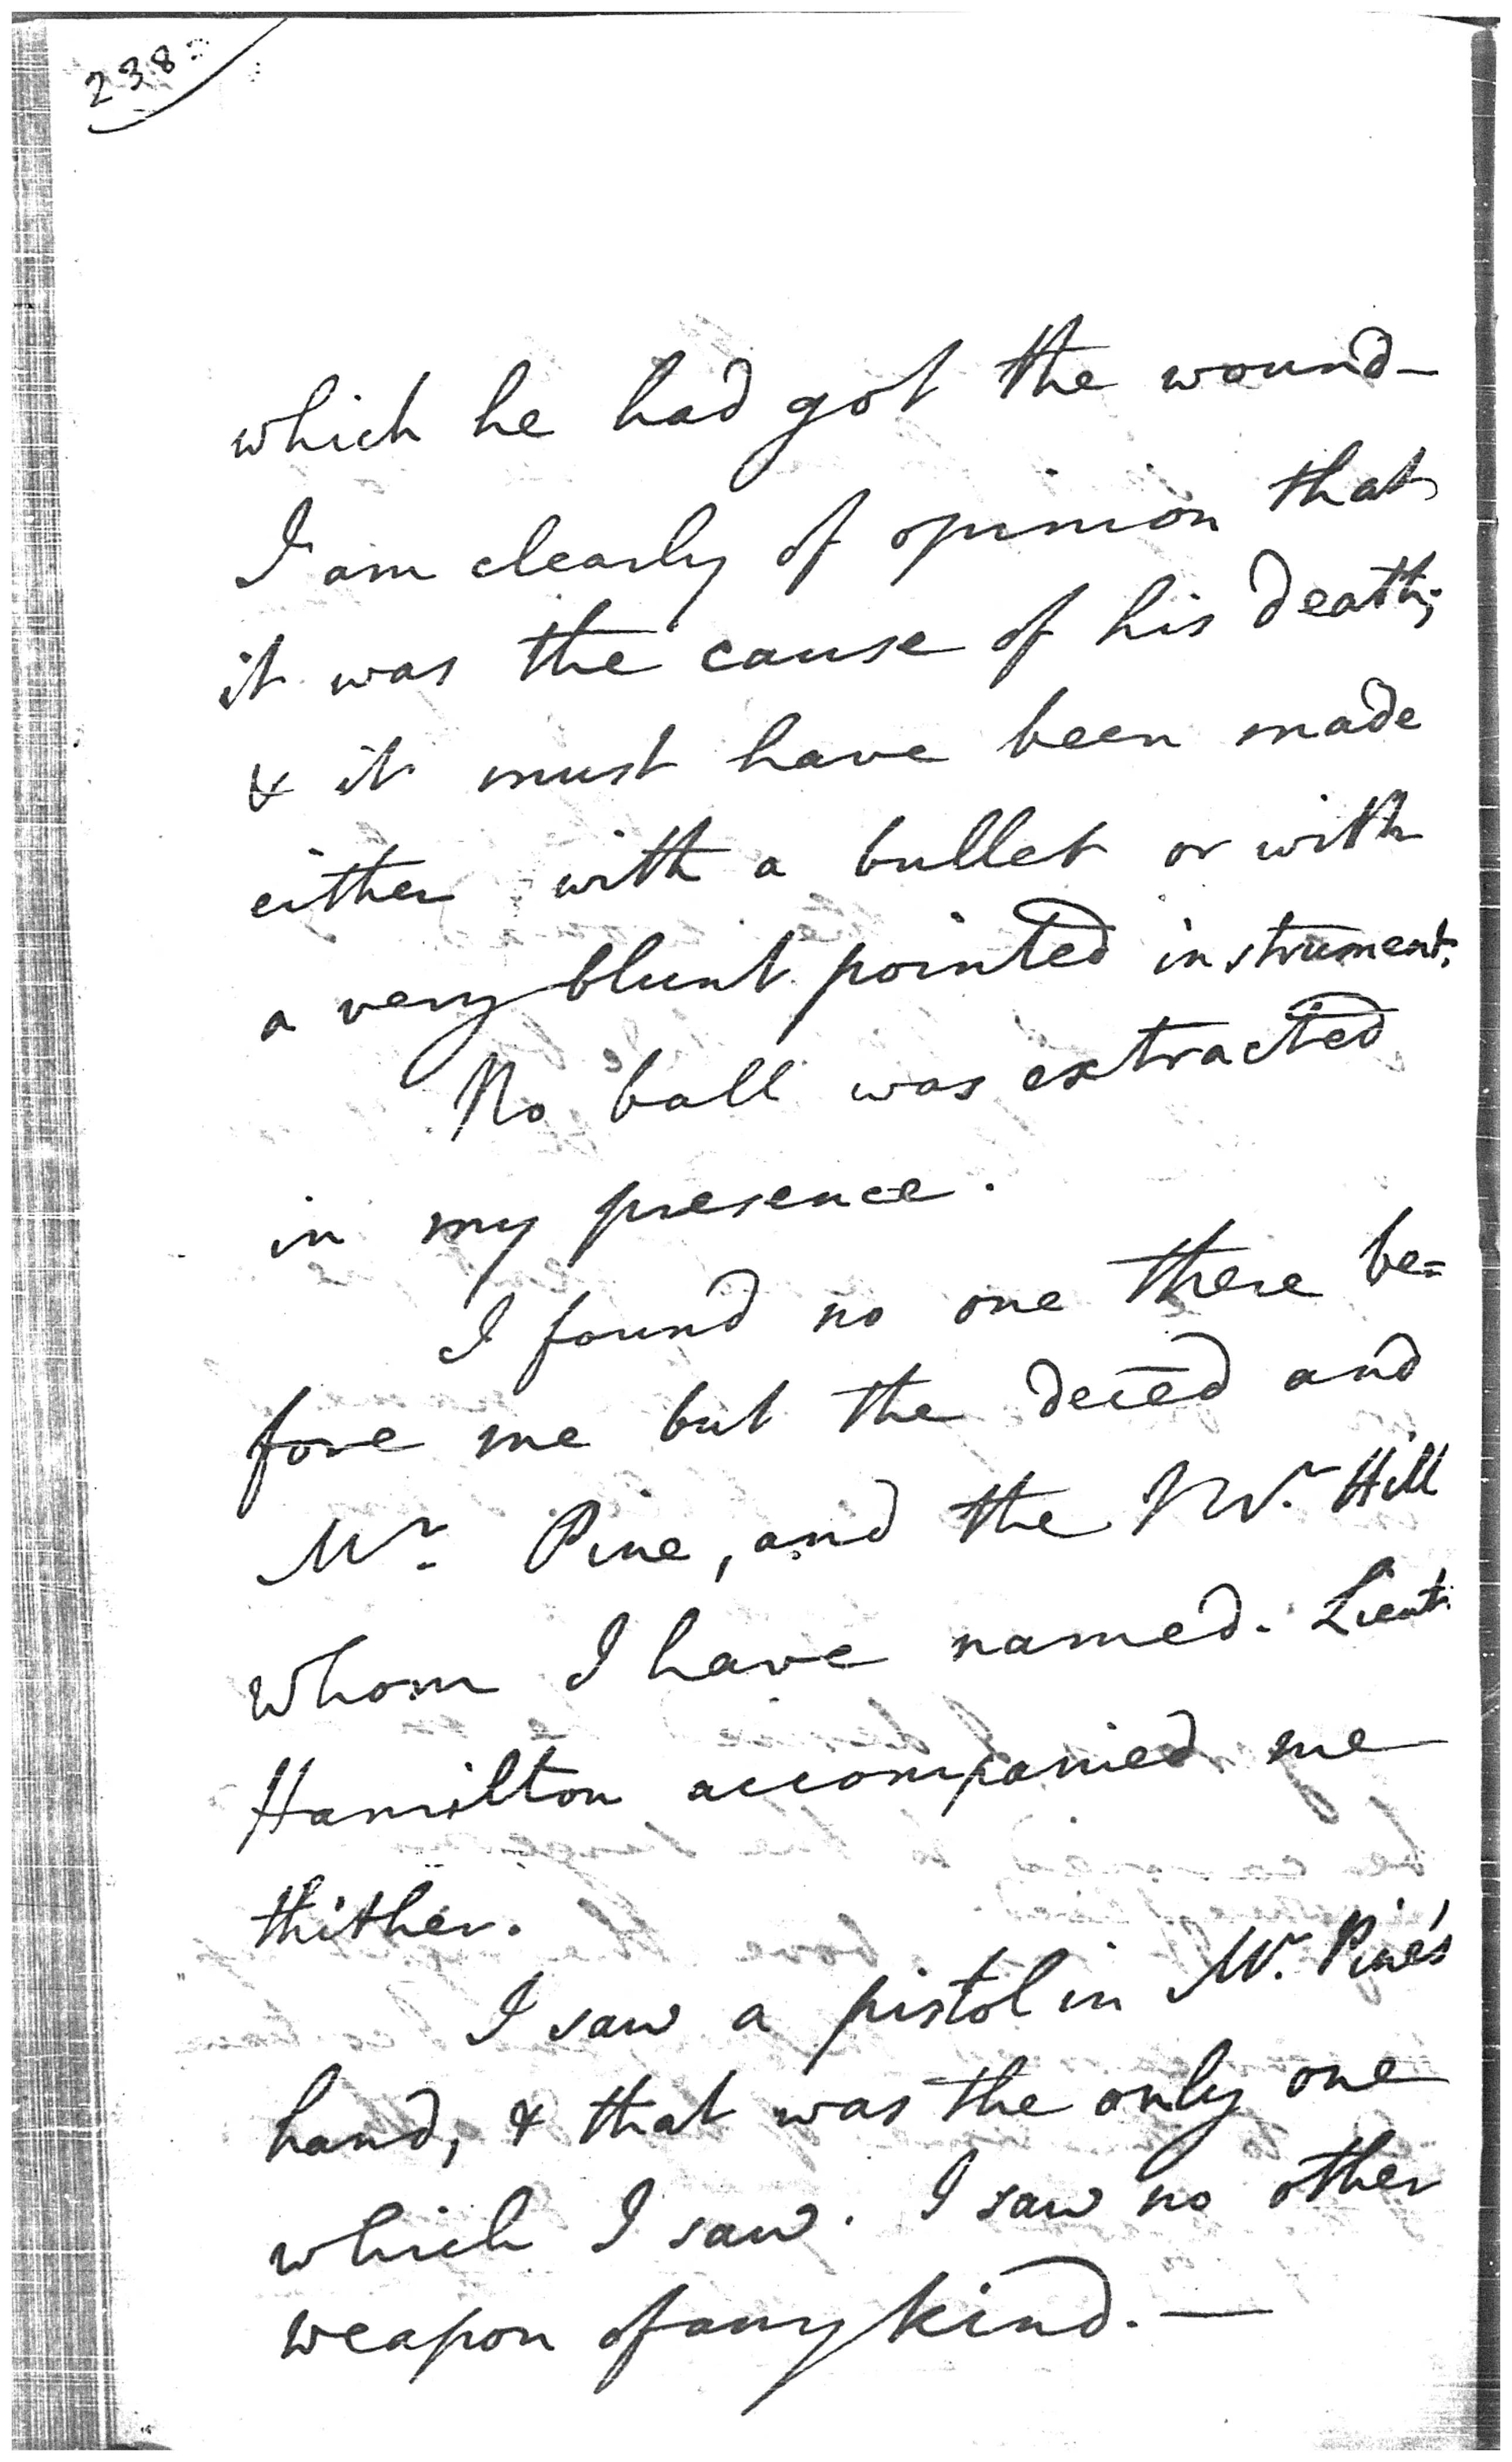 238
which he had got the wound—
I am clearly of opinion that
it was the cause of his death;
& it must have been made
either with a bullet or with
a very blunt pointed instrument.
No ball was extracted
in my presence.
I found no one there be=
fore me but the deced and
Mr. Pine, and the Mr. Hill
whom I have named. Lieut.
Hamilton accompanied me
thither.
I saw a pistol in Mr. Pine's
hand, & that was the only one
which I saw. I saw no other
weapon of any kind. —